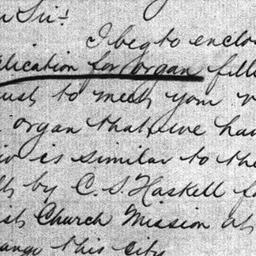 Sir:
I beg to enclo
plication for organ fille
ust to meet your
organ that we hav
is similar to the
by C. S. Haskell f
Church Mission at
ange this City